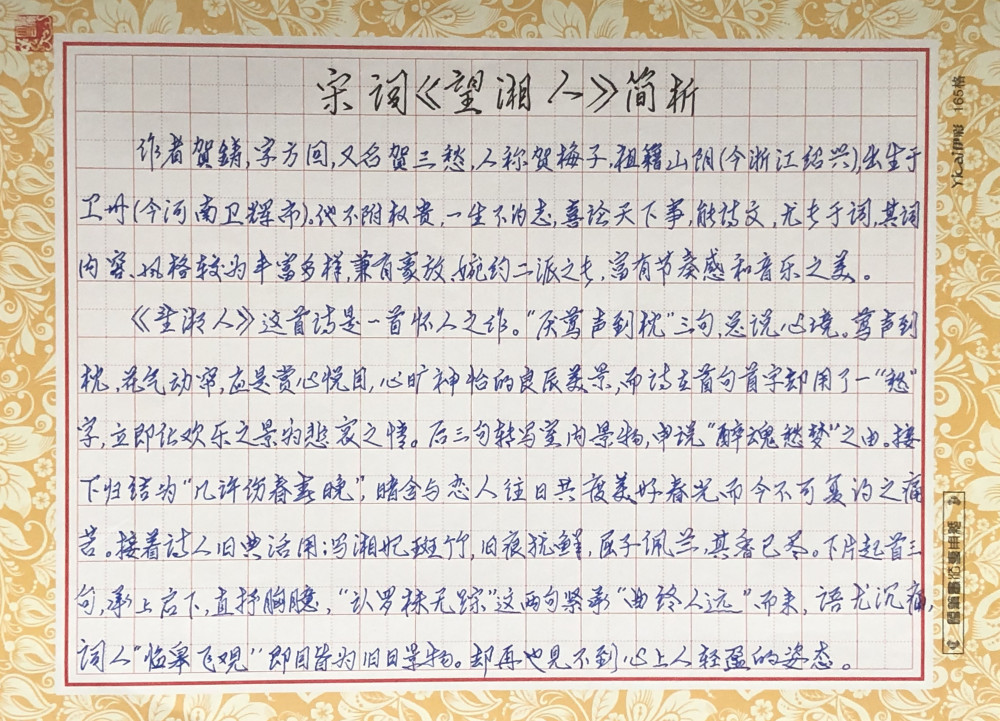 宋词《望湘人》简析
作者贺铸,字方回,又名贺三愁,人称贺梅子.祖籍山阴(今浙江绍兴),出生于
卫州(今河南卫辉市).他不附权贵,一生不为志,喜论天下事,能诗文,尤长于词,其词
内容、风格较为丰富多样,兼有豪放、婉约二派之长,富有节奏感和音乐之美。
《望湘人》这首诗是一首怀人之作。“厌莺声到枕”三句,总说心境。莺声到
枕,花气动帘,应是赏心悦目,心旷神怡的良辰美景,而诗在首句首字却用了一“愁”
字,立即让欢乐之景为悲哀之情。后三句转写室内景物,申说“醉魂愁梦”之由。接
下归结为“几许伤春春晚”,暗含与恋人往日共度美好春光,而今不可复得之痛
苦。接着诗人旧典活用:写湘妃斑竹,旧痕犹鲜,屈子佩兰,其香已尽。下片起首三
句,承上启下,直抒胸臆,“认罗袜无踪”这两句紧承“曲终人远”而来,语尤沉痛,
词人“临皋飞观”即目皆为旧日景物。却再也见不到心上人轻盈的姿态。
165格